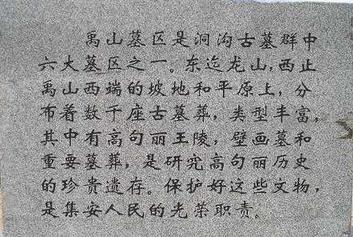 禹山墓区是洞沟古墓群中
六大墓区之一。东迄龙山,西止
禹山西端的坡地和平原上,分
布着数千座古墓葬,类型丰富,
其中有高句丽王陵,壁画墓和
重要墓葬,是研究高句丽历史
的珍贵遗存。保护好这些文物,
是集安人民的光荣职责。